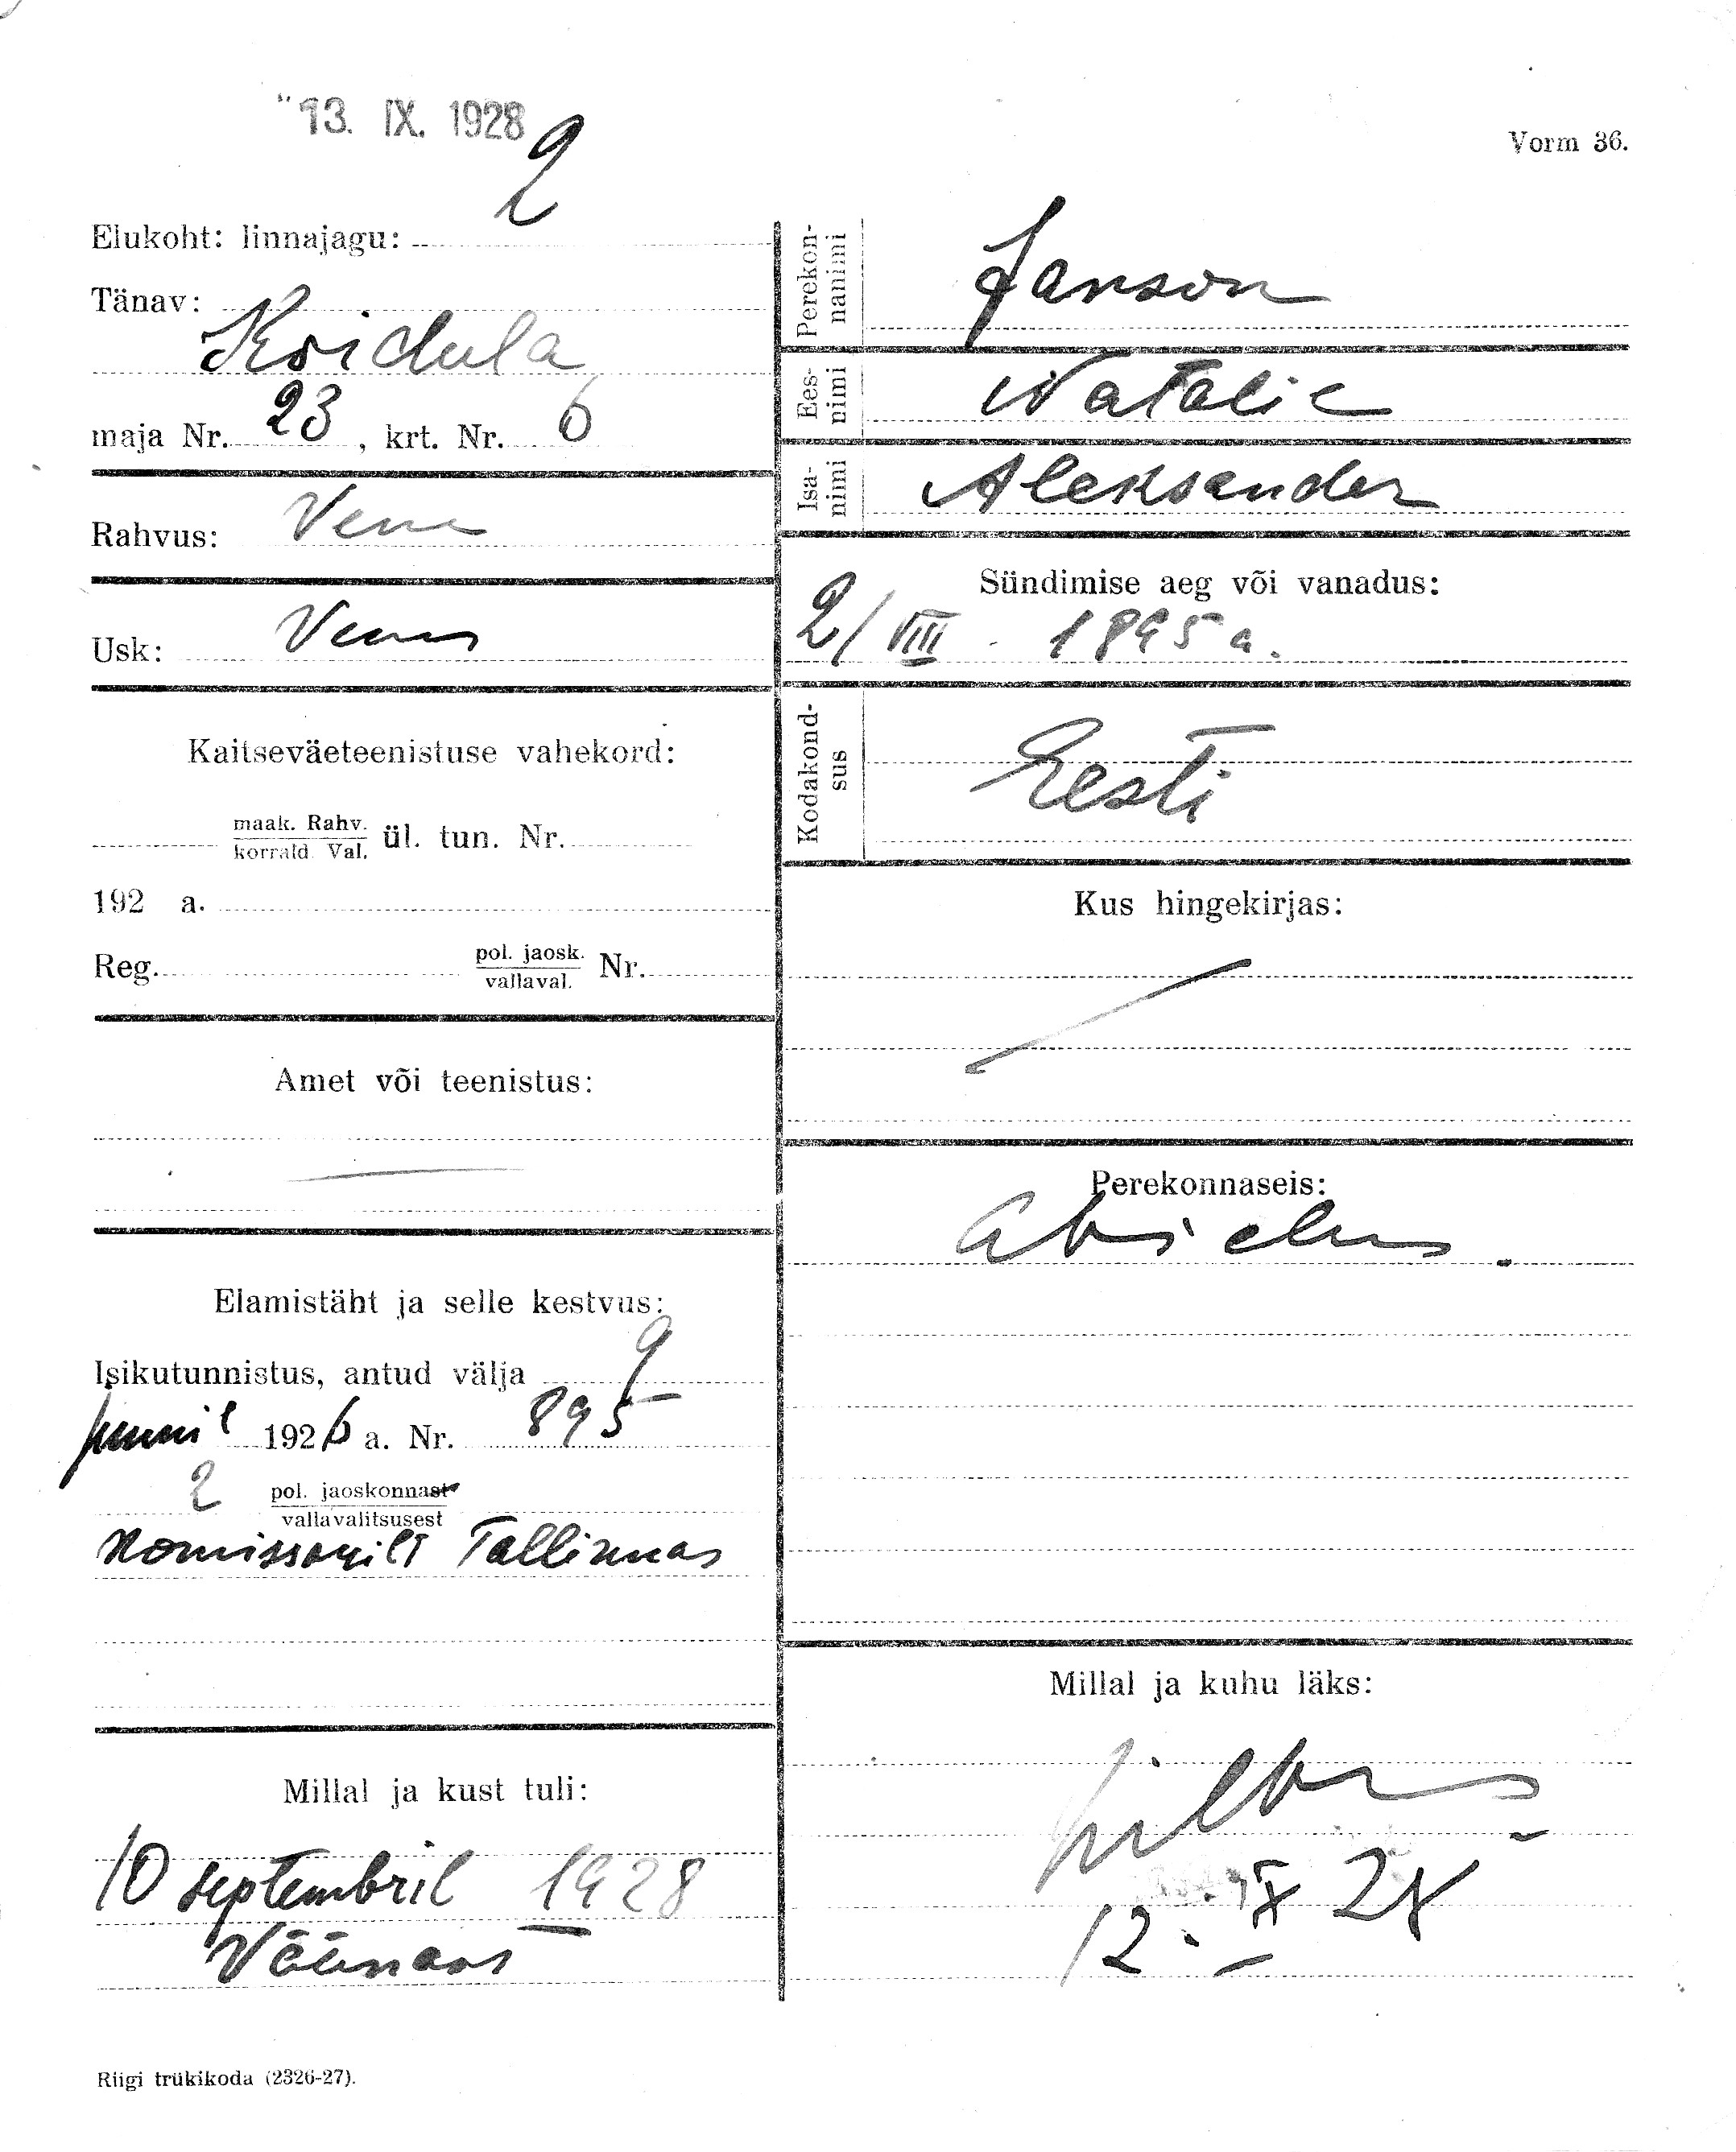 13. IX. 1928
Vorm 36.
2
Elukoht: linnajagu:
Tänav:
Koidula
maja Nr. 23, krt. Nr. 6
Rahvus: Vene
Usk: Vene
Kaitseväeteenistuse vahekord:
maak. Rahv.
korrald. Val. ül. tun. Nr.
192 a.
Reg. pol. jaosk.
vallaval. Nr.
Amet või teenistus:
Elamistäht ja selle kestvus:
Isikutunnistus, antud välja 9
juunil 1926 a. Nr. 895
2 pol. jaoskonnast
vallavalitsusest
Komissarilt Tallinnas
Millal ja kust tuli:
10 septembril 1928
Väänast
Riigi trükikoda (2326-27).
Perekon-
nanimi
Janson
Ees-
nimi
Natalie
Isa-
nimi
Aleksander
Sündimise aeg või vanadus:
2/VIII - 1895 a.
Kodakond-
sus
Eesti
Kus hingekirjas:
Perekonnaseis:
Abielus.
Millal ja kuhu läks:
12. IX 28